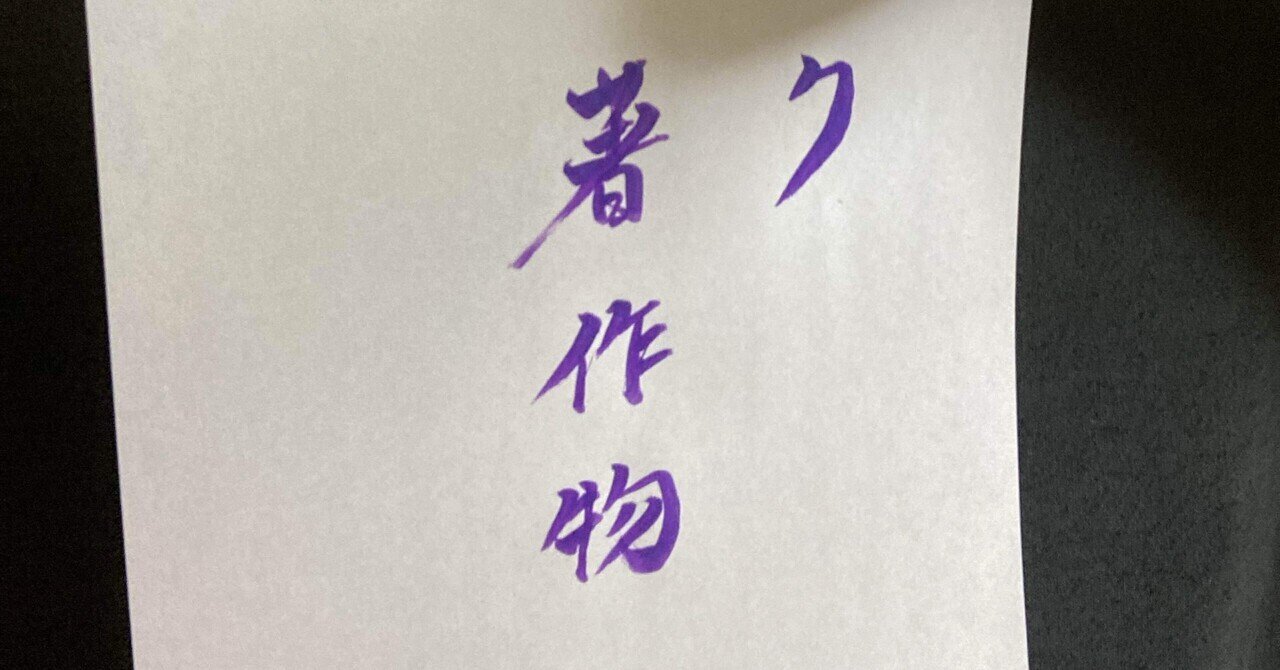 ク
著作物